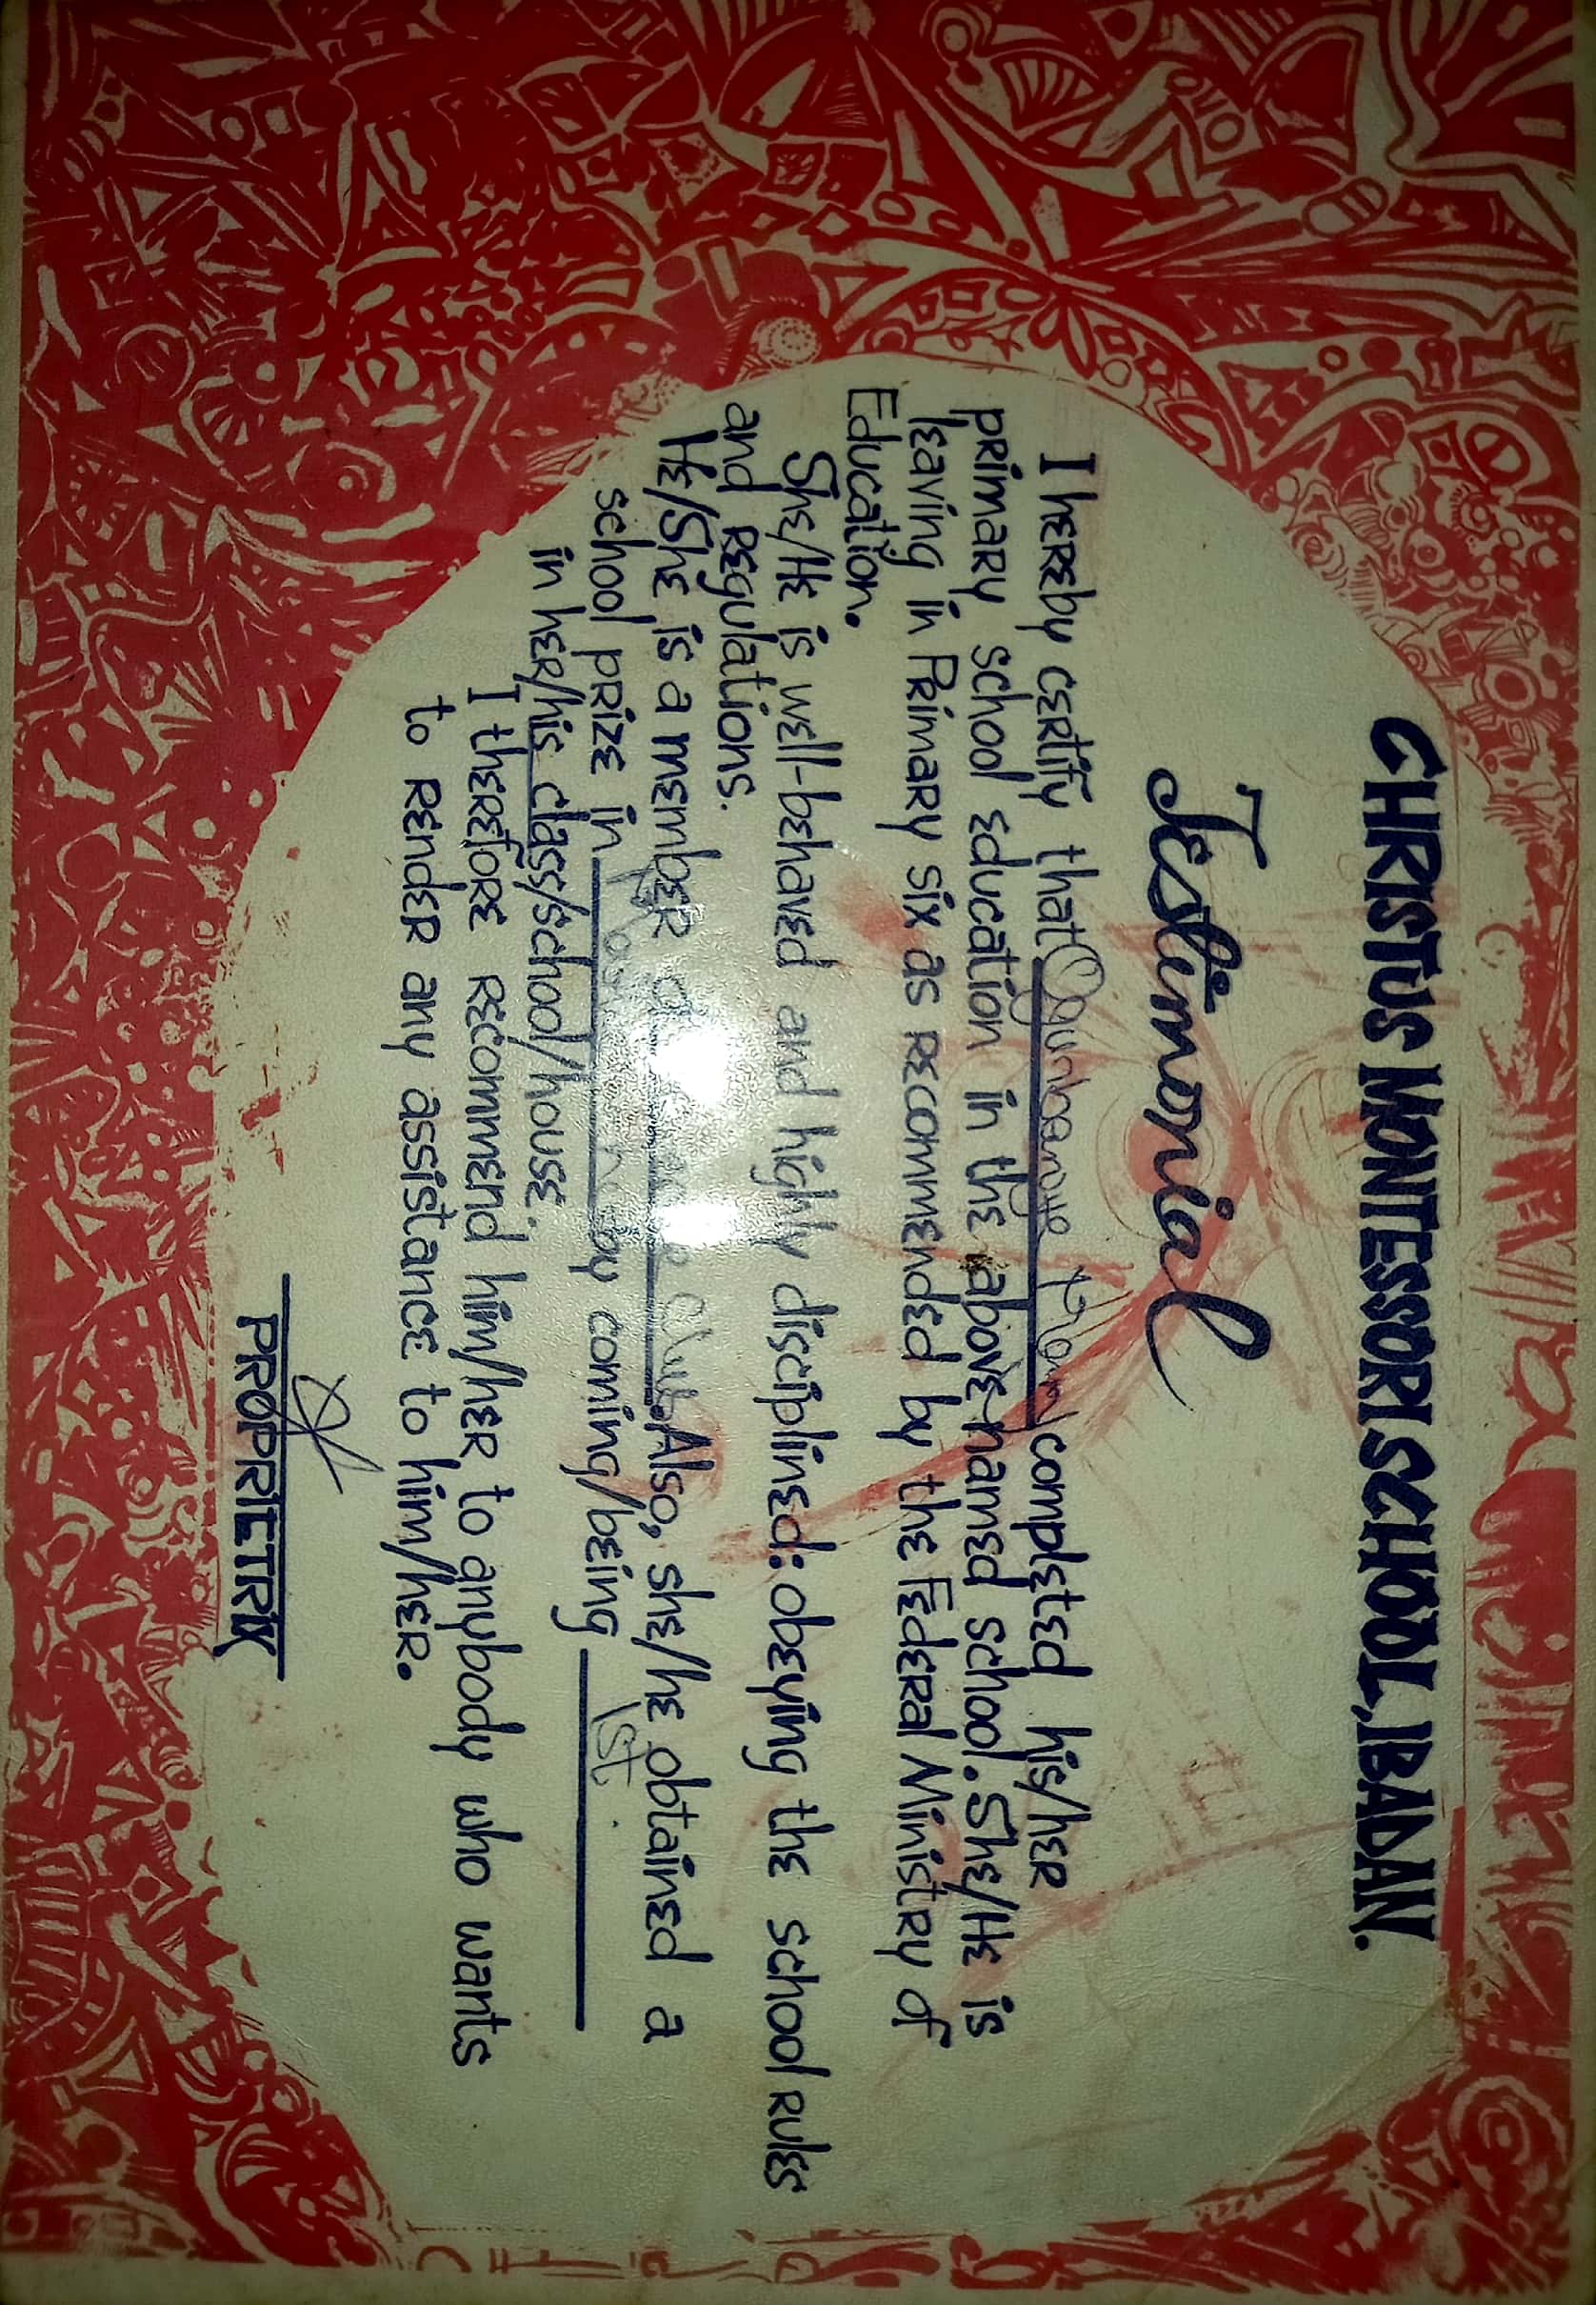 CHRISTUS MONTESSORI SCHOOL, IBADAN.
Testimonial
I hereby certify that completed his/her
primary school education in the above-named school. She/He is
leaving in Primary six as recommended by the Federal Ministry of
Education.
She/He is well-behaved and highly disciplined: obeying the school rules
and regulations.
He/She is a member of Also, she/he obtained a
school prize in by coming/being 1st
in her/his class/school/house.
I therefore recommend him/her to anybody who wants
to render any assistance to him/her.
PROPRIETRIX